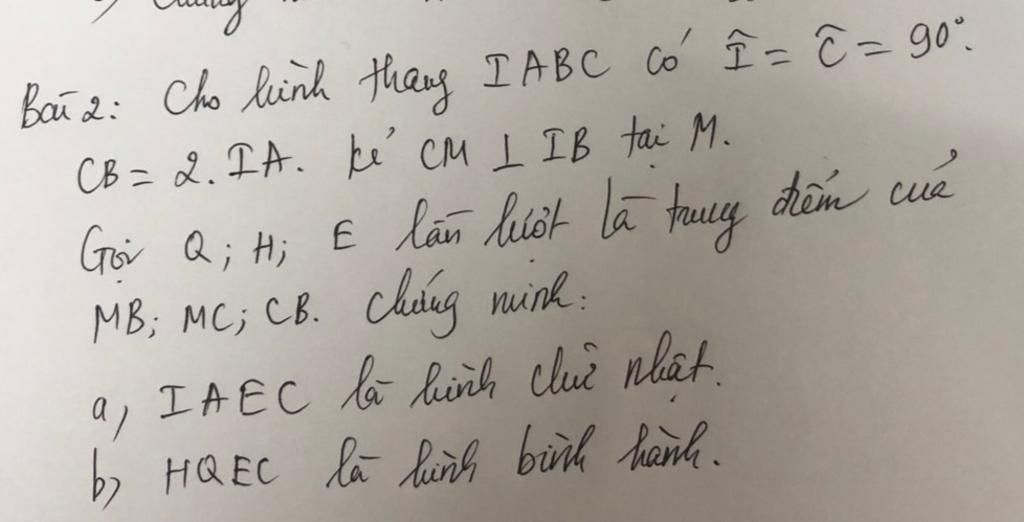 Bài 2: Cho hình thang IABC có Î = Ĉ = 90°.
CB = 2. IA. Kẻ CM ⊥ IB tại M.
Gọi Q; H; E lần lượt là trung điểm của
MB; MC; CB. Chứng minh:
a, IAEC là hình chữ nhật.
b, HQEC là hình bình hành.